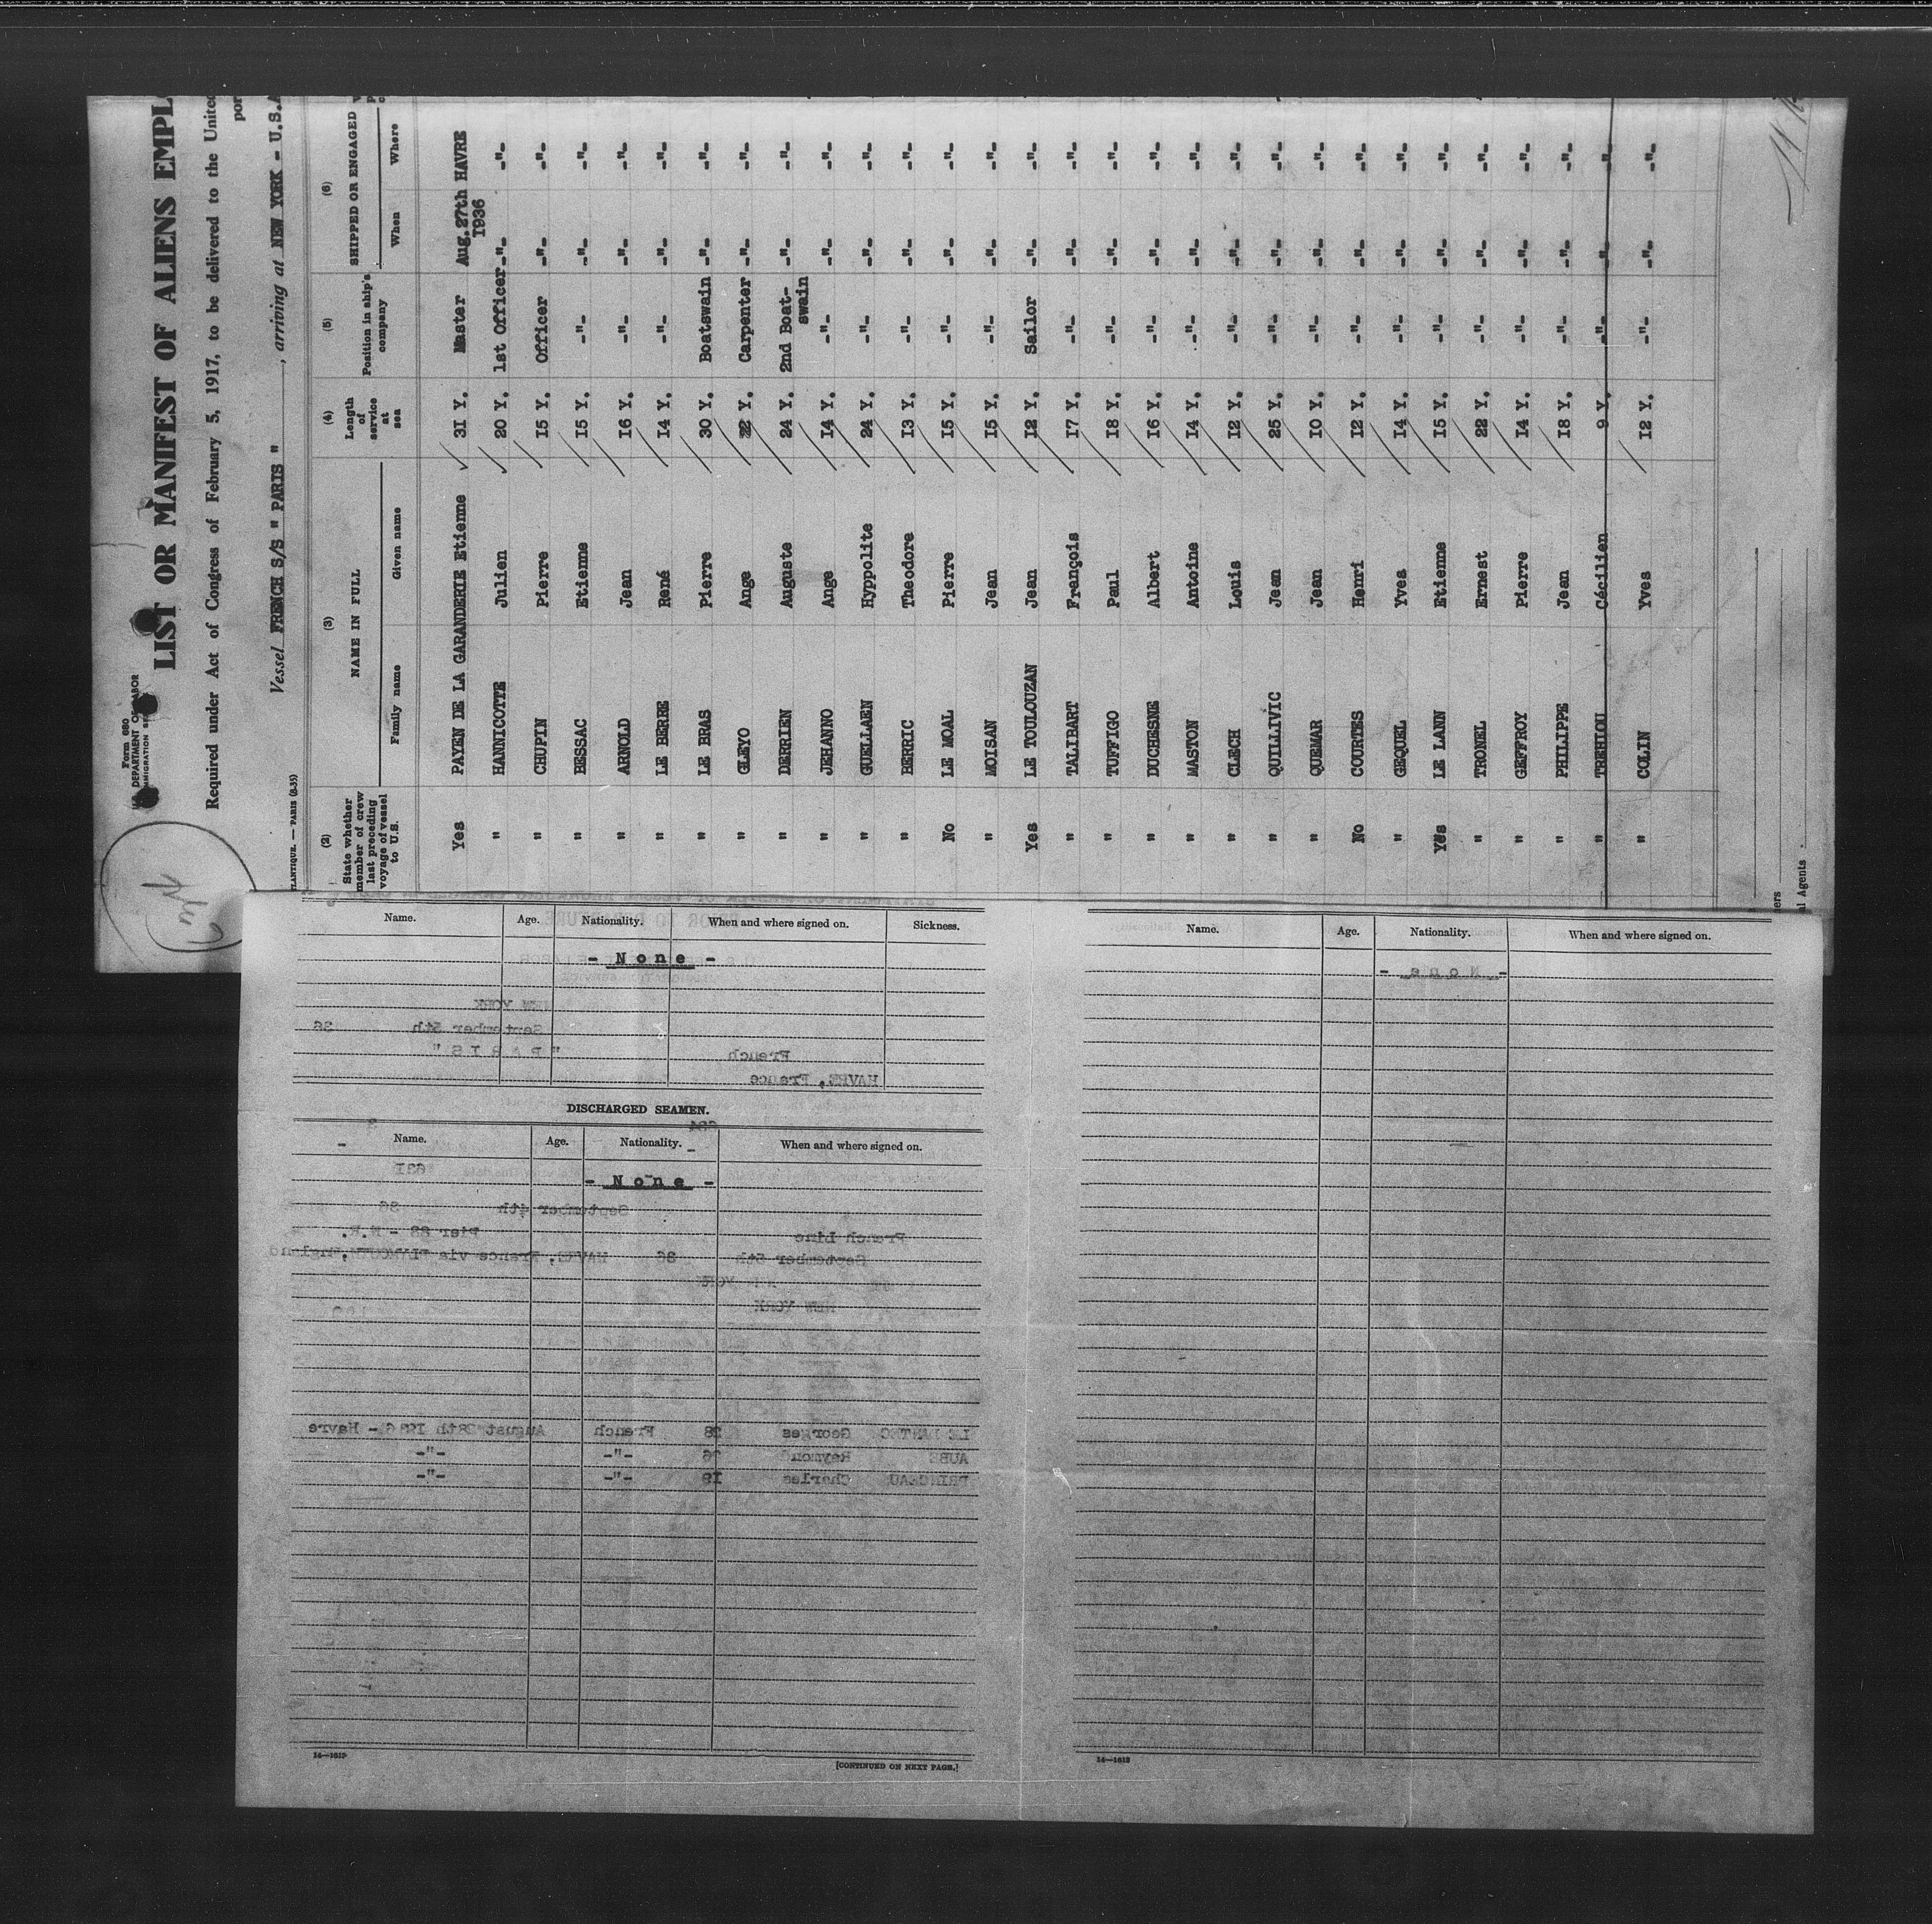 Form 680
U.S. DEPARTMENT OF LABOR
IMMIGRATION
LIST OR MANIFEST OF ALIENS EMPL
Required under Act of Congress of February 5, 1917, to be delivered to the United
por
Vessel FRENCH S/S " PARIS " , arriving at NEW YORK - U.S.A
TLANTIQUE. — PARIS (2-35)
(2) (3) (4) (5) (6)
State whether member of crew last preceding voyage of vessel to U.S. NAME IN FULL Length of service at sea Position in ship's company SHIPPED OR ENGAGED
Family name Given name When Where
Yes PAYEN DE LA GARANDERIE Etienne 31 Y. Master Aug.27th 1936 HAVRE
" HANNICOTTE Julien 20 Y. 1st Officer -"- -"-
" CHUPIN Pierre 15 Y. Officer -"- -"-
" BESSAC Etienne 15 Y. -"- -"- -"-
" ARNOLD Jean 16 Y. -"- -"- -"-
" LE BERRE René 14 Y. -"- -"- -"-
" LE BRAS Pierre 30 Y. Boatswain -"- -"-
" GLEYO Ange 22 Y. Carpenter -"- -"-
" DERRIEN Auguste 24 Y. 2nd Boat-swain -"- -"-
" JEHANNO Ange 14 Y. -"- -"- -"-
" GUELLAEN Hyppolite 24 Y. -"- -"- -"-
" BERRIC Theodore 13 Y. -"- -"- -"-
No LE MOAL Pierre 15 Y. -"- -"- -"-
" MOISAN Jean 15 Y. -"- -"- -"-
Yes LE TOULOUZAN Jean 12 Y. Sailor -"- -"-
" TALIBART François 17 Y. -"- -"- -"-
" TUFFIGO Paul 18 Y. -"- -"- -"-
" DUCHESNE Albert 16 Y. -"- -"- -"-
" MASTON Antoine 14 Y. -"- -"- -"-
" CLECH Louis 12 Y. -"- -"- -"-
" QUILLIVIC Jean 25 Y. -"- -"- -"-
" QUEMAR Jean 10 Y. -"- -"- -"-
No COURTES Henri 12 Y. -"- -"- -"-
" GEQUEL Yves 14 Y. -"- -"- -"-
Yes LE LANN Etienne 15 Y. -"- -"- -"-
" TRONEL Ernest 22 Y. -"- -"- -"-
" GEFFROY Pierre 14 Y. -"- -"- -"-
" PHILIPPE Jean 18 Y. -"- -"- -"-
" TREHIOU Cécilien 9 Y. -"- -"- -"-
" COLIN Yves 12 Y. -"- -"- -"-
ers
al Agents
Name. Age. Nationality. When and where signed on. Sickness.
- None -
NEW YORK
September 5th 36
French "PARIS"
HAVRE, France
DISCHARGED SEAMEN.
Name. Age. Nationality. When and where signed on.
- None -
September 4th 36
French Line Pier 88 - N.R.
September 5th 36 HAVRE, France via PLYMOUTH, England
NEW YORK
Georges 28 French August 28th 1936 - Havre
AUBE Raymond 26 -"- -"-
PRINCEAU Charles 19 -"- -"-
14—1613
[CONTINUED ON NEXT PAGE.]
Name. Age. Nationality. When and where signed on.
- None -
14—1613